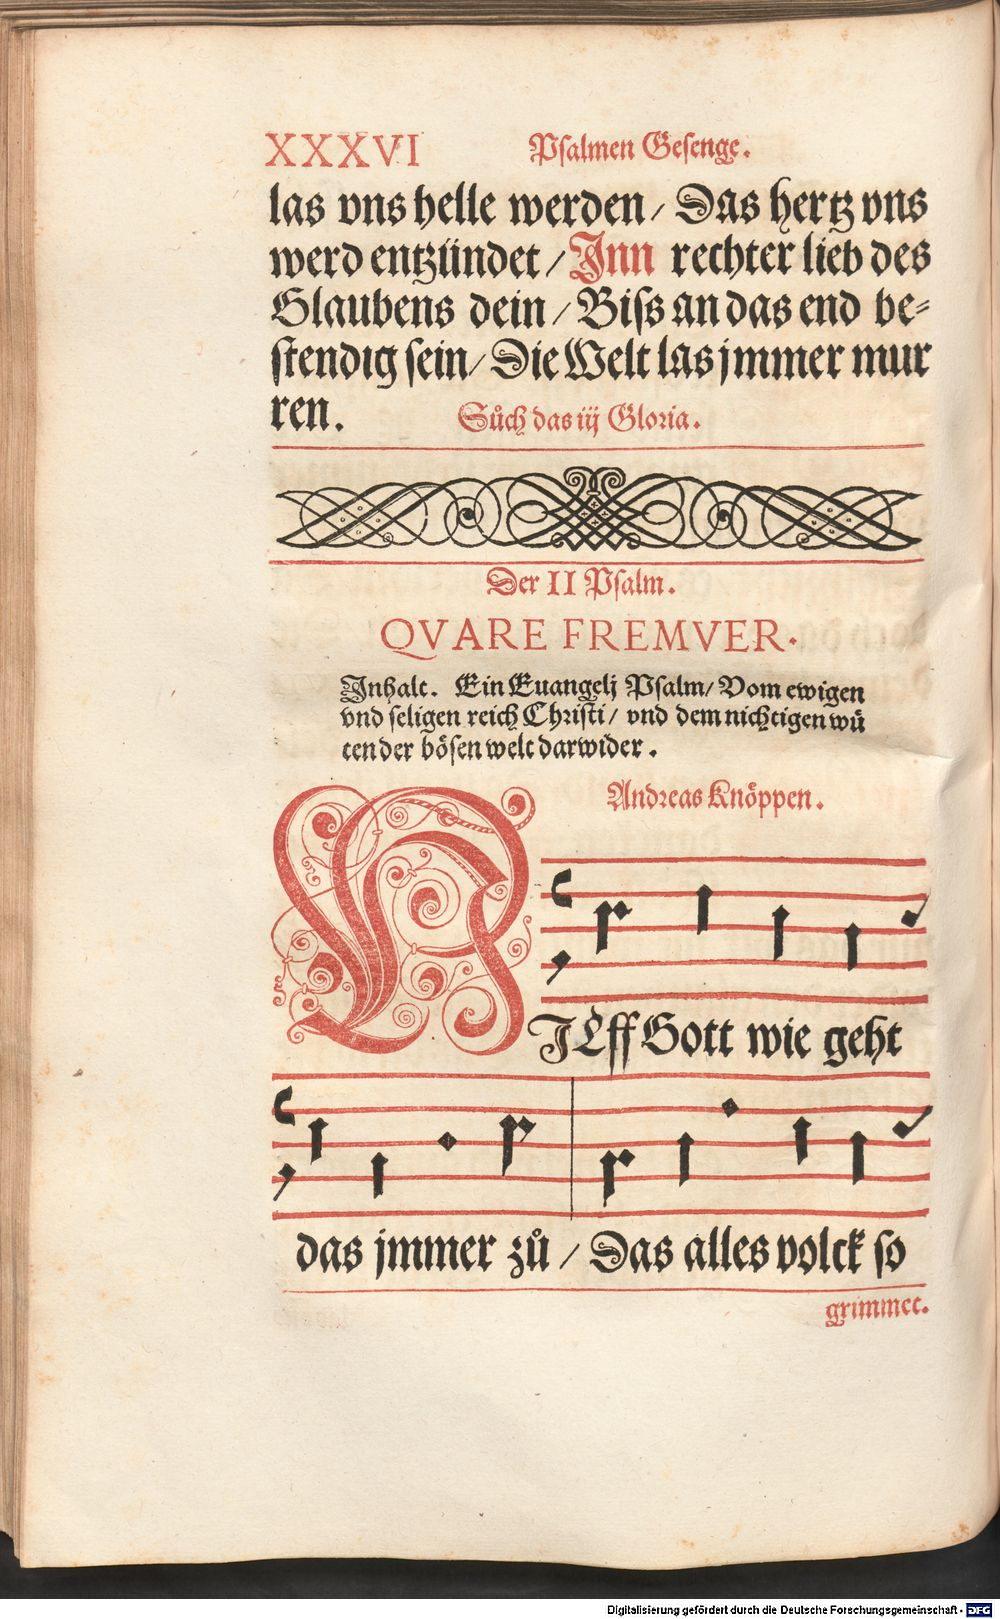 XXXVI Psalmen Gesenge.
las vns helle werden/ Das hertz vns
werd entzündet/ Inn rechter lieb des
Glaubens dein/ Biss an das end be⸗
stendig sein/ Die Welt las jmmer mur
ren. Sůch das iij Gloria.
Der II Psalm.
QVARE FREMVER.
Inhalt. Ein Euangelj Psalm/ Vom ewigen
vnd seligen reich Christi/ vnd dem nichtigen wü
tender bösen welt darwider.
Andreas Knöppen.
HIlff Gott wie geht
das jmmer zů/ Das alles volck so
grimmet.
Digitalisierung gefördert durch die Deutsche Forschungsgemeinschaft - DFG